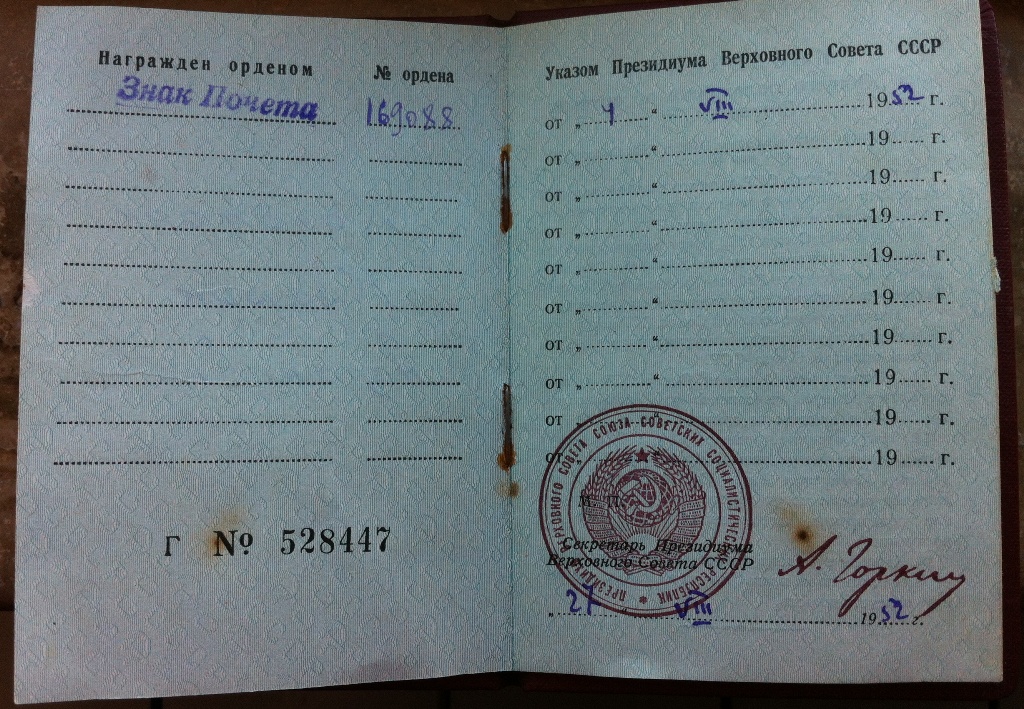 Награжден орденом № ордена
Знак Почета 169088
Г № 528447
Указом Президиума Верховного Совета СССР
от „ 4 “ VIII 1952 г.
от „ “ 19 г.
от „ “ 19 г.
от „ “ 19 г.
от „ “ 19 г.
от „ “ 19 г.
от „ “ 19 г.
от „ “ 19 г.
от „ “ 19 г.
от „ “ 19 г.
М. П.
ПРЕЗИДИУМ ВЕРХОВНОГО СОВЕТА СОЮЗА СОВЕТСКИХ СОЦИАЛИСТИЧЕСКИХ РЕСПУБЛИК
Секретарь Президиума
Верховного Совета СССР
А. Горкин
„ 27 “ VIII 1952 г.